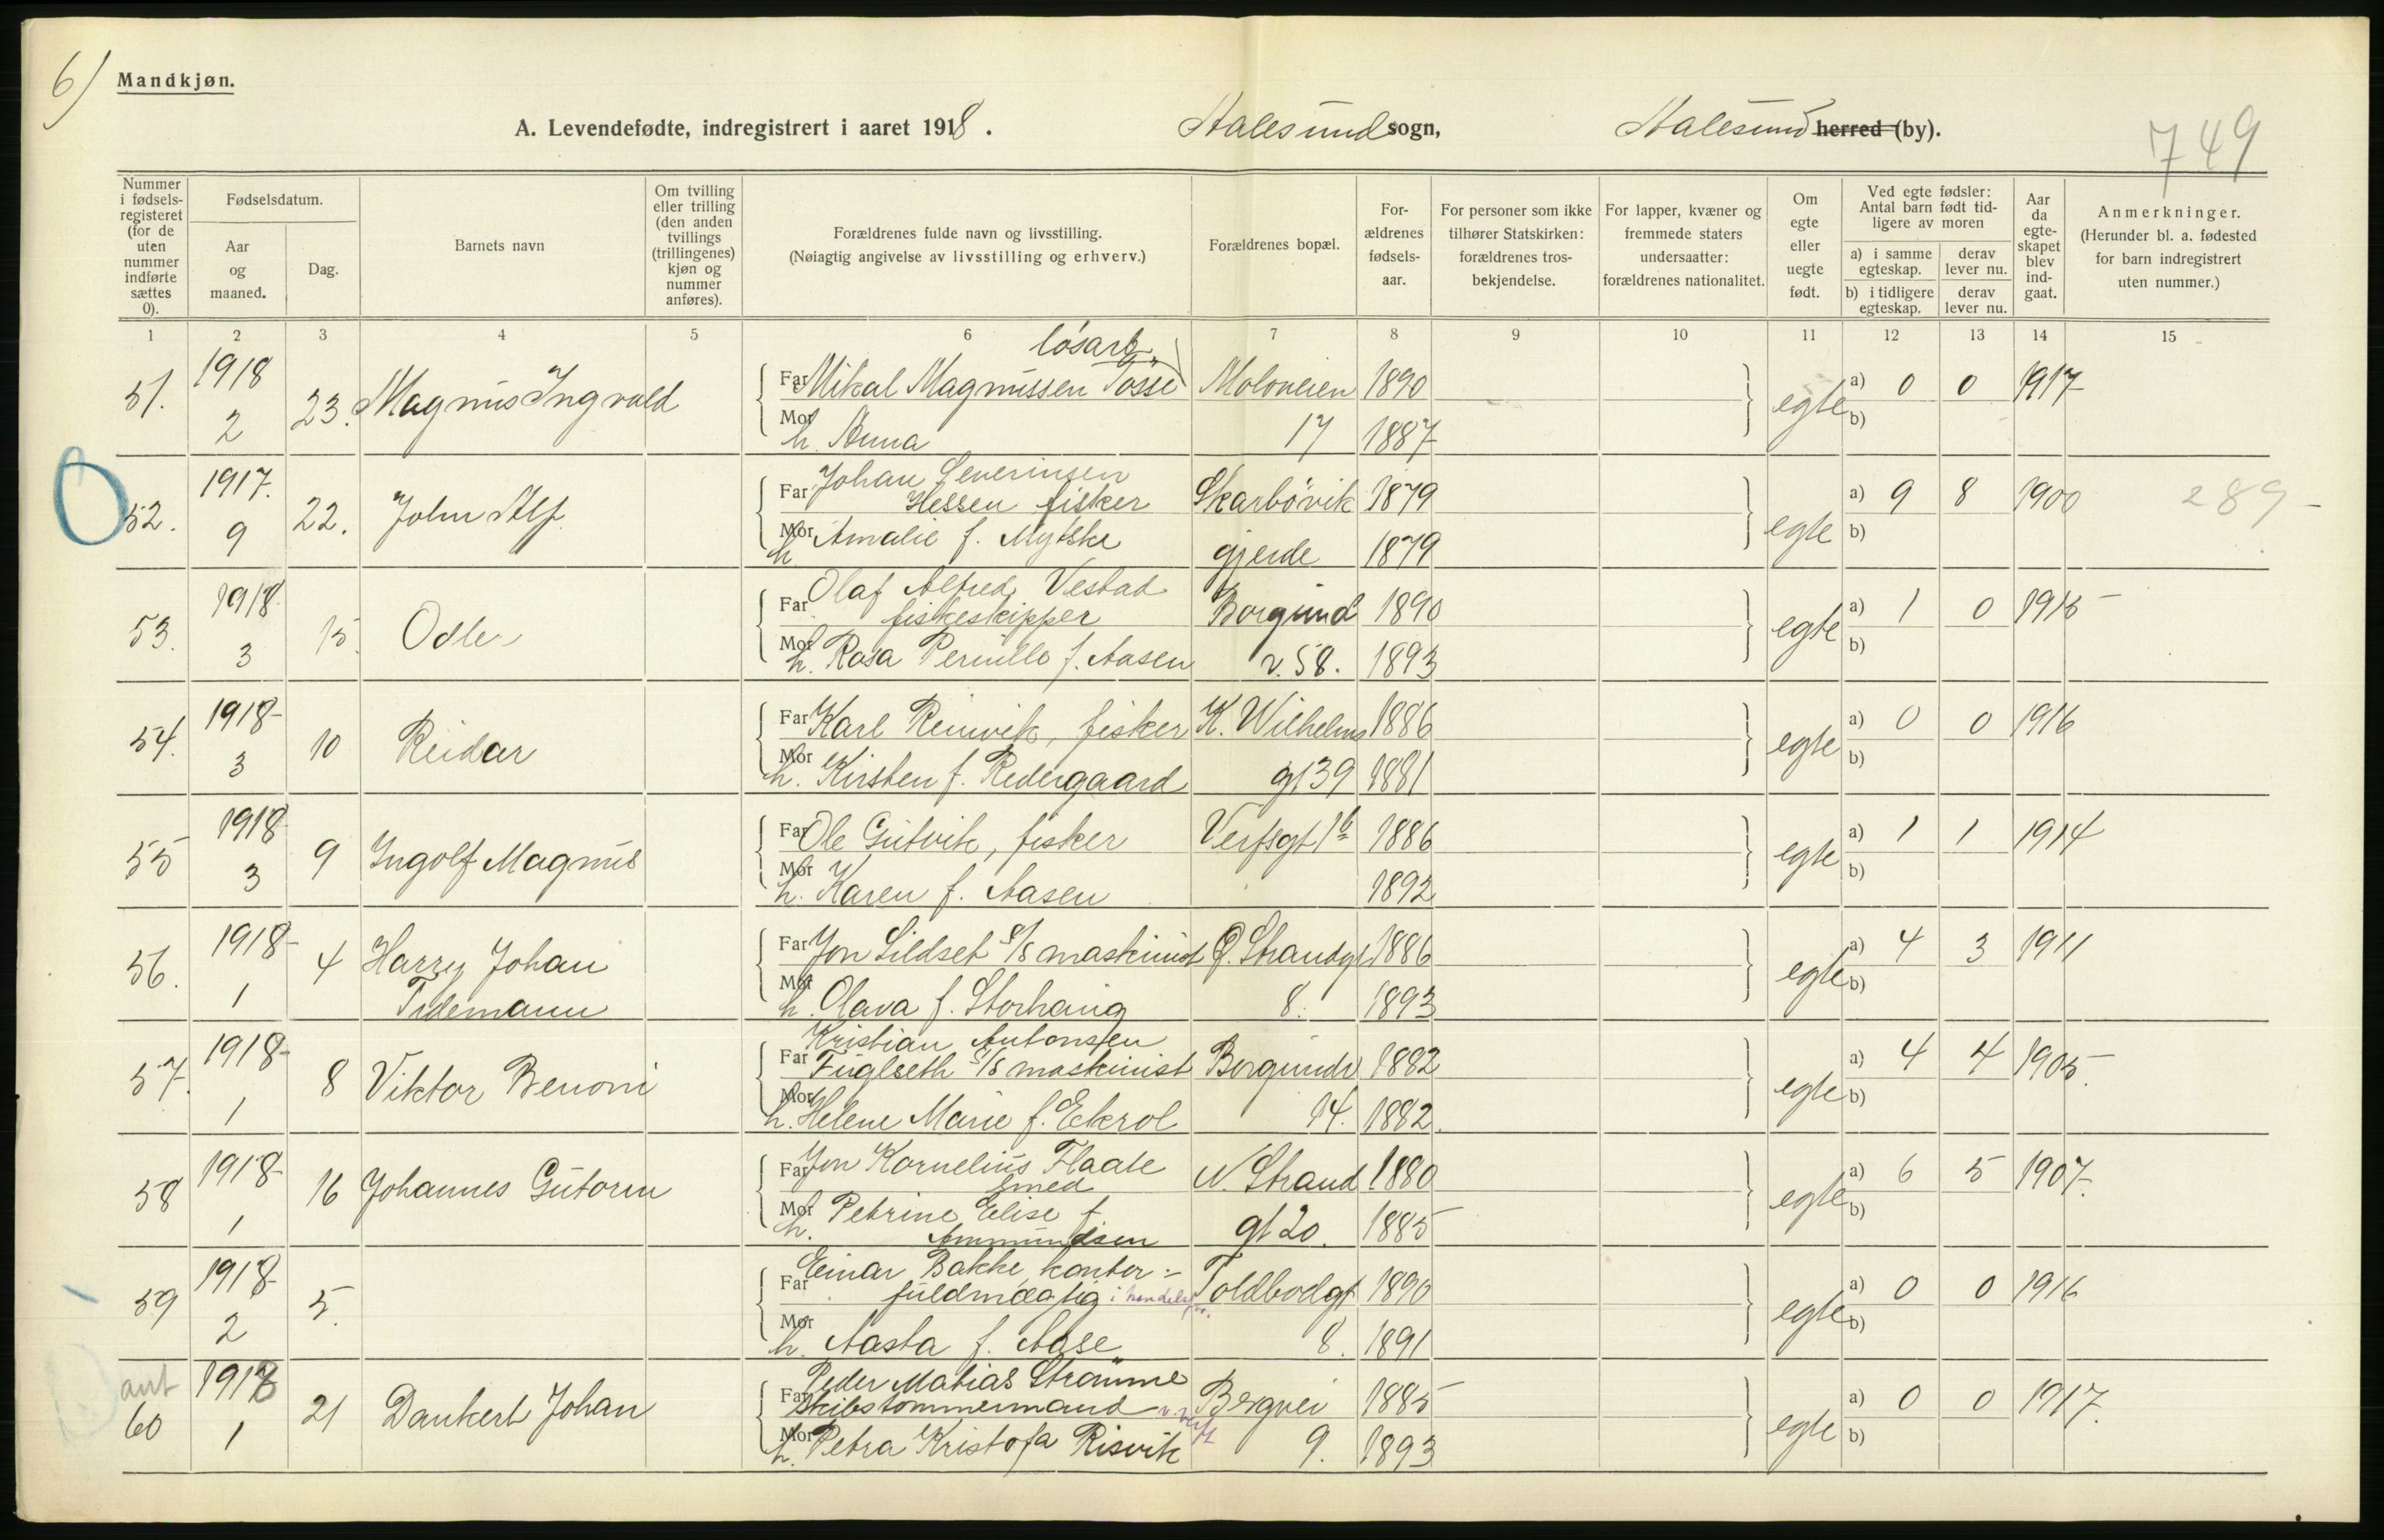 6)
Mandkjøn.
A. Levendefødte, indregistrert i aaret 1918. Aalesund sogn, Aalesund herred (by).
749
Nummer i fødselsregisteret (for de uten nummer indførte sættes 0).
Fødselsdatum.
Aar og maaned.
Dag.
Barnets navn
Om tvilling eller trilling (den anden tvillings (trillingenes) kjøn og nummer anføres).
Forældrenes fulde navn og livsstilling.
(Nøiagtig angivelse av livsstilling og erhverv.)
Forældrenes bopæl.
For-ældrenes fødsels-aar.
For personer som ikke tilhører Statskirken: forældrenes tros-bekjendelse.
For lapper, kvæner og fremmede staters undersaatter: forældrenes nationalitet.
Om egte eller uegte født.
Ved egte fødsler: Antal barn født tid-ligere av moren
a) i samme egteskap. derav lever nu.
b) i tidligere egteskap. derav lever nu.
Aar da egte-skapet blev ind-gaat.
Anmerkninger.
(Herunder bl. a. fødested for barn indregistrert uten nummer.)
1 2 3 4 5 6 7 8 9 10 11 12 13 14 15
løsarb.
51. 1918 2 23. Magnus Ingvald Far Mikal Magnussen Tosse Moloveien 1890 egte a) 0 0 1917
Mor h. Anna 17 1887 b)
Johan Severinsen
52. 1917. 9 22. John Alf Far Hessen fisker Skarbøvik 1879 egte a) 9 8 1900 289
Mor h Amalie f. Myhske gjerde 1879 b)
Olaf Alfred Vestad
53. 1918 3 15. Odle Far fiskeskipper Borgund 1890 egte a) 1 0 1915
Mor h. Rosa Pernille f. Aasen v. 58. 1893 b)
54. 1918 3 10 Reidar Far Karl Remvik, fisker K. Wilhelms 1886 egte a) 0 0 1916
Mor h. Kirsten f. Redergaard gt 39 1881 b)
55 1918 3 9 Ingolf Magnus Far Ole Gutvik, fisker Verfsgt 1b 1886 egte a) 1 1 1914
Mor h. Karen f. Aasen 1892 b)
56. 1918 1 4 Harry Johan Tidemann Far Jon Sildset S/S maskinist Ø. Strandgt 1886 egte a) 4 3 1911
Mor h. Olava f. Storhaug 8. 1893 b)
Kristian Antonsen
57. 1918 1 8 Viktor Benoni Far Fuglseth S/S maskinist Borgundv 1882 egte a) 4 4 1905.
Mor h. Helene Marie f. Ekrol 14. 1882. b)
Jon Kornelius Flaate
58 1918 1 16 Johannes Gutorm Far smed N. Strand 1880 egte a) 6 5 1907.
Mor h. Petrine Elise f. gt 20. 1885 b)
Ammundsen
Einar Bakke, kontor-
59 1918 2 5. Far fuldmægtig i handelsfor. Toldbodgt 1890 egte a) 0 0 1916
Mor h. Aasta f. Aase 8. 1891 b)
Peder Matias Strømme
ant
60 1918 1 21 Dankert Johan Far skibstømmermand v. verft Bergvei 1885 egte a) 0 0 1917.
Mor h. Petra Kristofa Risvik 9. 1893 b)